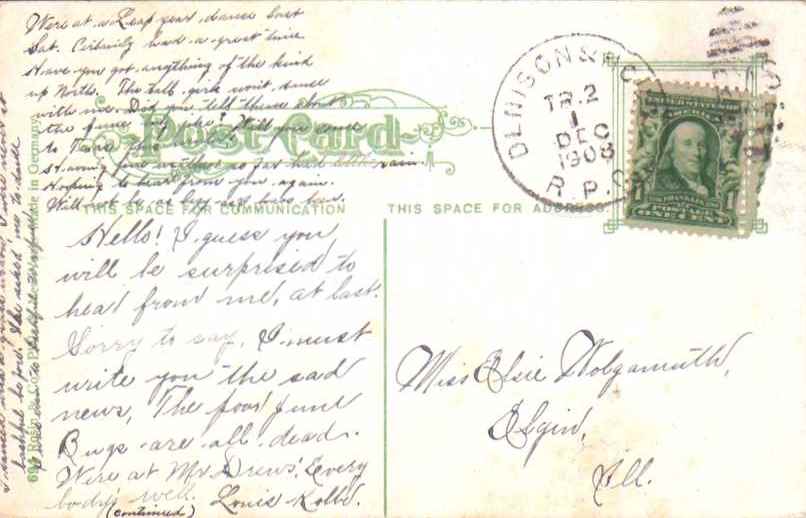 Were at a Leap year dance last
Sat. Certainly had a great time
Have you got anything of the kind
up North. The tall girls wont dance
with me. Did you tell them about
the June Will you come
to Texas this
Having fine weather so far had little rain.
Hoping to hear from you again.
Will not be so long next time
Post Card
THIS SPACE FOR COMMUNICATION
THIS SPACE FOR ADDRESS.
DENISON &
TR. 2
1
DEC
1908
R.P.O.
UNITED STATES OF
AMERICA
FRANKLIN
POSTAGE
ONE CENT
Hello! I guess you
will be surprised to
hear from me, at last.
Sorry to say, I must
write you the sad
news, The poor June
Bugs are all dead.
Were at Mr Drews'. Every
body well. Louis Kolbe.
(continued)
Miss Elsie Wolgamuth,
Elgin,
Ill.
I never
bashful before. She asked me to
to bashful to refuse
Made in Germany